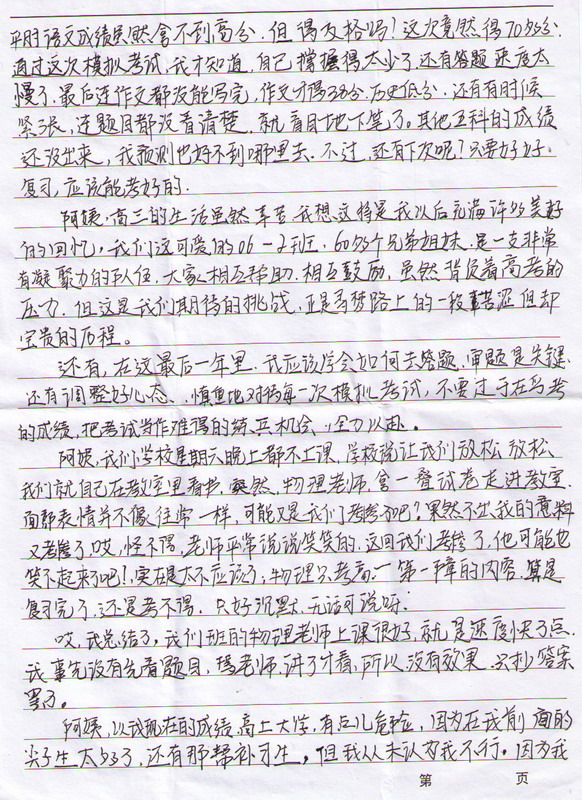 平时语文成绩虽然拿不到高分,但得及格吗!这次竟然得70多分.
通过这次模拟考试,我才知道,自己掌握得太少了.还有答题速度太
慢了.最后连作文都没能写完,作文才得38分.历史低分.还有有时候
紧张,连题目都没看清楚,就盲目地下笔了。其他五科的成绩
还没出来,我预测也好不到哪里去.不过,还有下次呢?只要好好
复习,应该能考好的.
阿姨,高三的生活虽然辛苦.我想这将是我以后充满许多美好
的回忆,我们这可爱的06-2班.60多个兄弟姐妹.是一支非常
有凝聚力的队伍,大家相互帮助.相互鼓励,虽然背负着高考的
压力.但这是我们期待的挑战.正是寻梦路上的一段辛苦涩但却
宝贵的历程。
还有,在这最后一年里.我应该学会如何去答题,审题是关键.
还有调整好心态、慎重地对待每一次模拟考试,不要过于在乎考
的成绩,把考试当作难得的练兵机会、全力以赴。
阿姨,我们学校星期六晚上都不上课,学校说让我们放松放松.
我们就自己在教室里看书,突然,物理老师,拿一叠试卷走进教室.
面部表情并不像往常一样,可能又是我们考砸了吧?果然不出我的意料
又考砸了.哎,怪不得,老师平常说说笑笑的.这回我们考砸了,他可能也
笑不起来了吧!实在是太不应该了,物理只考高一第一章的内容.算是
复习完了,还是考不得.只好沉默.无话可说呀!
哎,我总结了,我们班的物理老师上课很好,就是速度快了点.
我事先没有先看题目,等老师讲了才看,所以没有效果.只抄答案
罢了。
阿姨,以我现在的成绩.高上大学,有点儿危险,因为在我前面的
尖子生太多了,还有那帮补习生,但我从未认为我不行。因为我
第 页